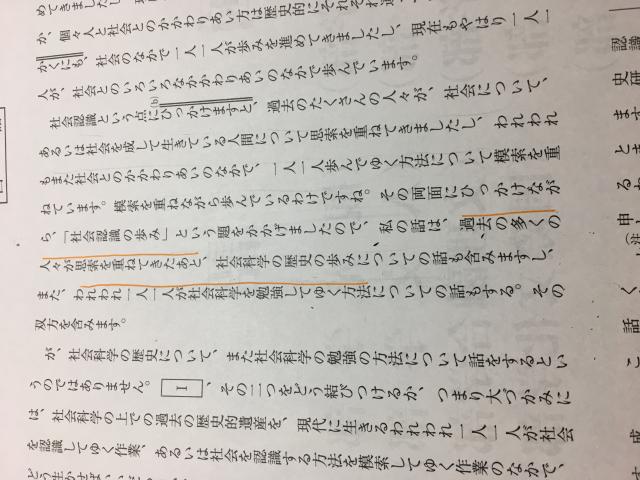 めてきました
か、個々人と社会とのかかわりあい方は歴史的にそれぞれ
かくにも、社会のなかで一人一人が歩みを進めてきましたし、現在もやはり一人一
人が、社会とのいろいろなかかわりあいのなかで歩んでいます。
社会認識という点にひっかけますと、過去のたくさんの人々が、社会について、
(b)
あるいは社会を成して生きている人間について思索を重ねてきましたし、われわれ
もまた社会とのかかわりあいのなかで、一人一人歩んでゆく方法について模索を重
ねています。模索を重ねながら歩んでいるわけですね。その両面にひっかけなが
ら、「社会認識の歩み」という題をかかげましたので、私の話は、過去の多くの
人々が思索を重ねてきたあと、社会科学の歴史の歩みについての話も含みますし、
また、われわれ一人一人が社会科学を勉強してゆく方法についての話もする。その
双方を含みます。
が、社会科学の歴史について、また社会科学の勉強の方法について話をするとい
うのではありません。 I 、その二つをどう結びつけるか、つまり大づかみに
は、社会科学の上での過去の歴史的遺産を、現代に生きるわれわれ一人一人が社会
を認識してゆく作業、あるいは社会を認識する方法を模索してゆく作業のなかで、